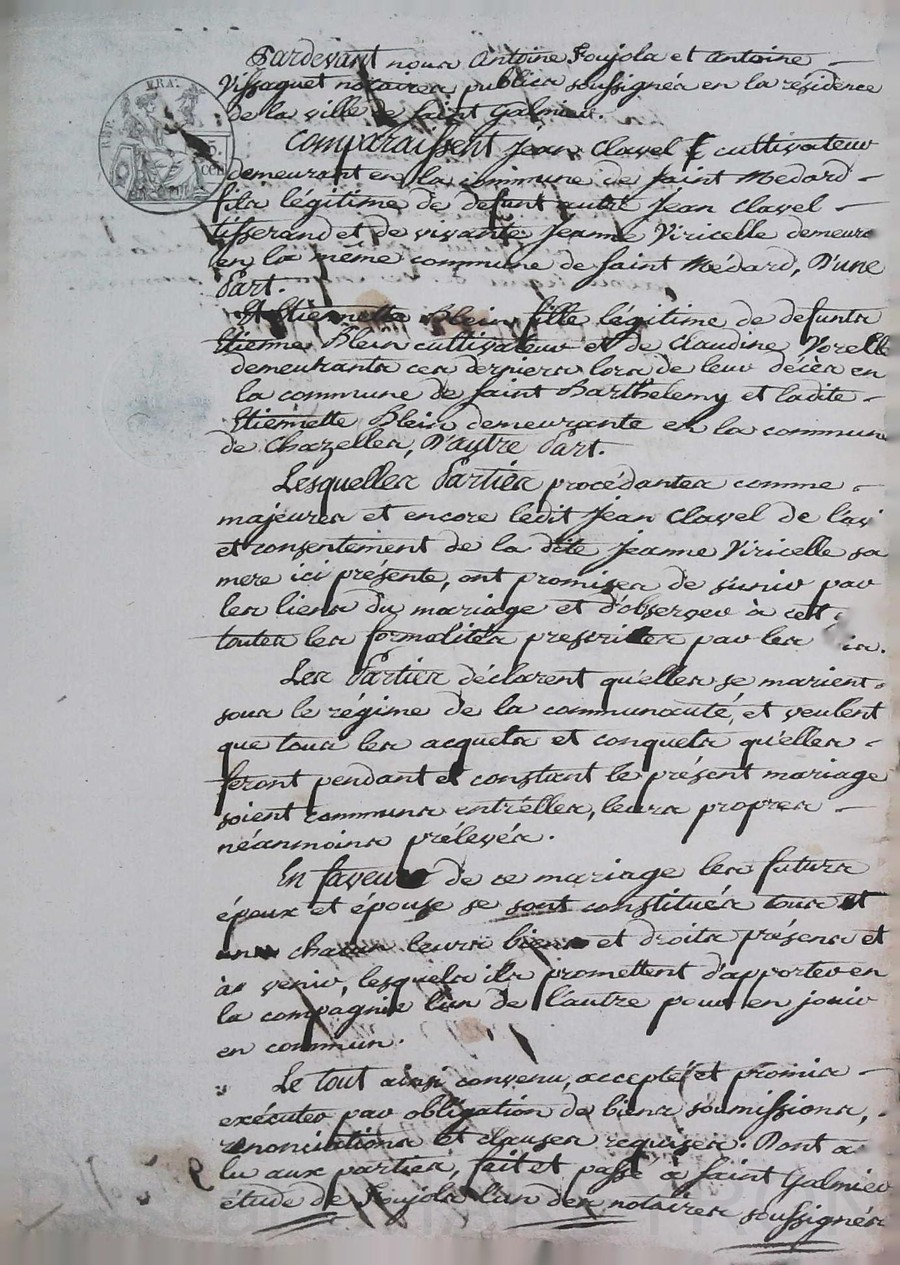 REP. FRA.
75.
CEN
Pardevant nous Antoine Poujola et Antoine
Vissaguet notaires publics soussignés en la résidence
de la ville de Saint Galmier.
Comparaissent Jean Clavel cultivateur
demeurant en la commune de Saint Medard
fils légitime de défunt autre Jean Clavel
tisserand et de vivante Jeanne Viricelle demeurt
en la même commune de Saint Médard, D'une
Part.
Et Etiennette Blein, fille légitime de defunts
Etienne Blein cultivateur et de Claudine
demeurants ces derniers lors de leur décès en
la commune de Saint Barthelemy et ladite
Etiennette Blein demeurante en la commune
de Chazelles, D'autre Part.
Lesquelles Parties procédantes comme
majeures et encore ledit Jean Clavel de l'avi
et consentement de la dite Jeanne Viricelle sa
mere ici présente, ont promises de s'unir par
les liens du mariage et d'observer à cet
toutes les formalités prescrites par les
Les Parties déclarent qu'elles se marient
sous le régime de la communauté, et veulent
que tous les acquets et conquets qu'elles
feront pendant et constant le présent mariage
soient communs entr'elles, leurs propres
néanmoins prélevés.
En faveur de ce mariage les futurs
époux et épouse se sont constitués tous et
un chacun leurs biens et droits présens et
à venir, lesquels ils promettent d'apporter en
la compagnie l'un de l'autre pour en jouir
en commun.
Le tout ainsi convenu, accepté et promis
exécuter par obligation de biens soumissions,
renonciations et clauses requises. Dont a
lu aux parties, fait et passé à Saint Galmier
étude de Poujola l'un des notaires soussignés